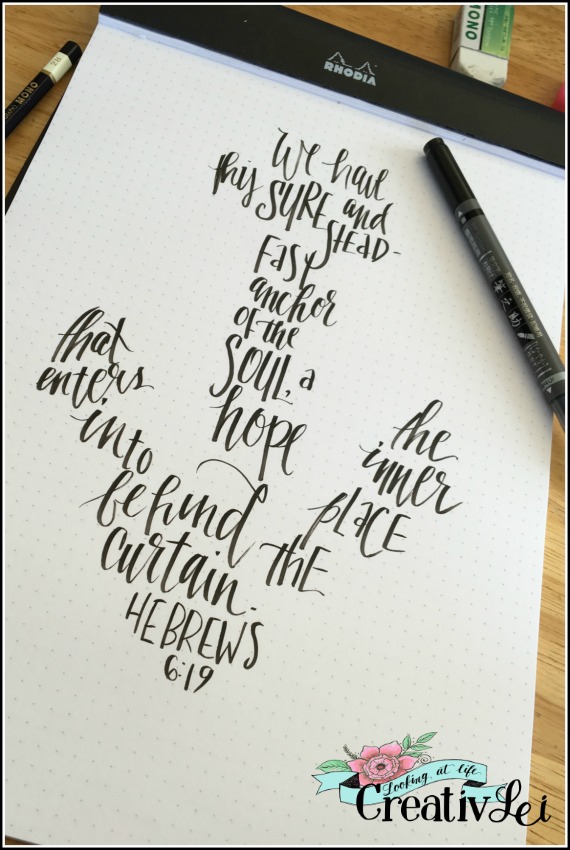 RHODIA
MONO
2B
MONO
筆之助
We have
this SURE and
STEAD-
FAST
anchor
of the
SOUL, a
hope
that
enters
into
the
inner
PLACE
behind
THE
curtain.
HEBREWS
6:19
Looking at life
CreativLei